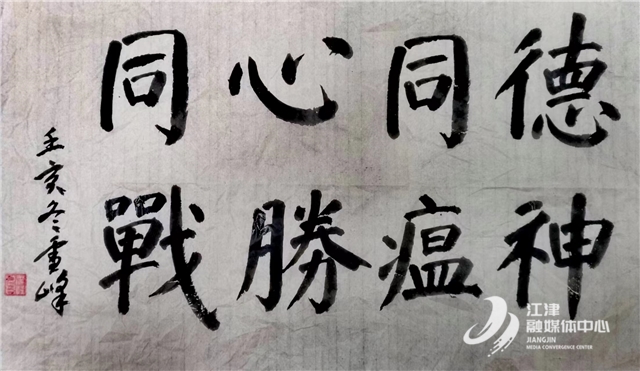 同心同德
戰勝瘟神
亥冬雪峰
江津
融媒体中心
JIANGJIN
MEDIA CONVERGENCE CENTER